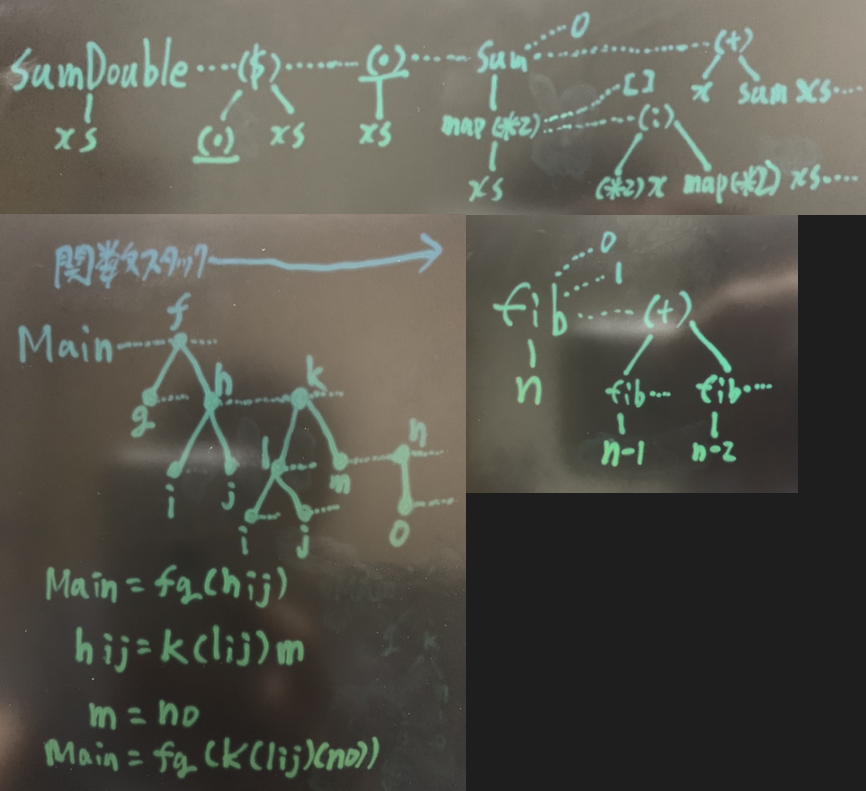 SumDouble ($) (・) Sum 0 (+)
xs (・) xs xs x sum xs
map (*2) [] (:)
xs (*2) x map (*2) xs
関数スタック
Main f
g h k
i j l m n
i j o
Main = fg(hij)
hij = k(lij)m
m = no
Main = fg(k(lij)(no))
fib 0
1
(+)
n fib fib
n-1 n-2